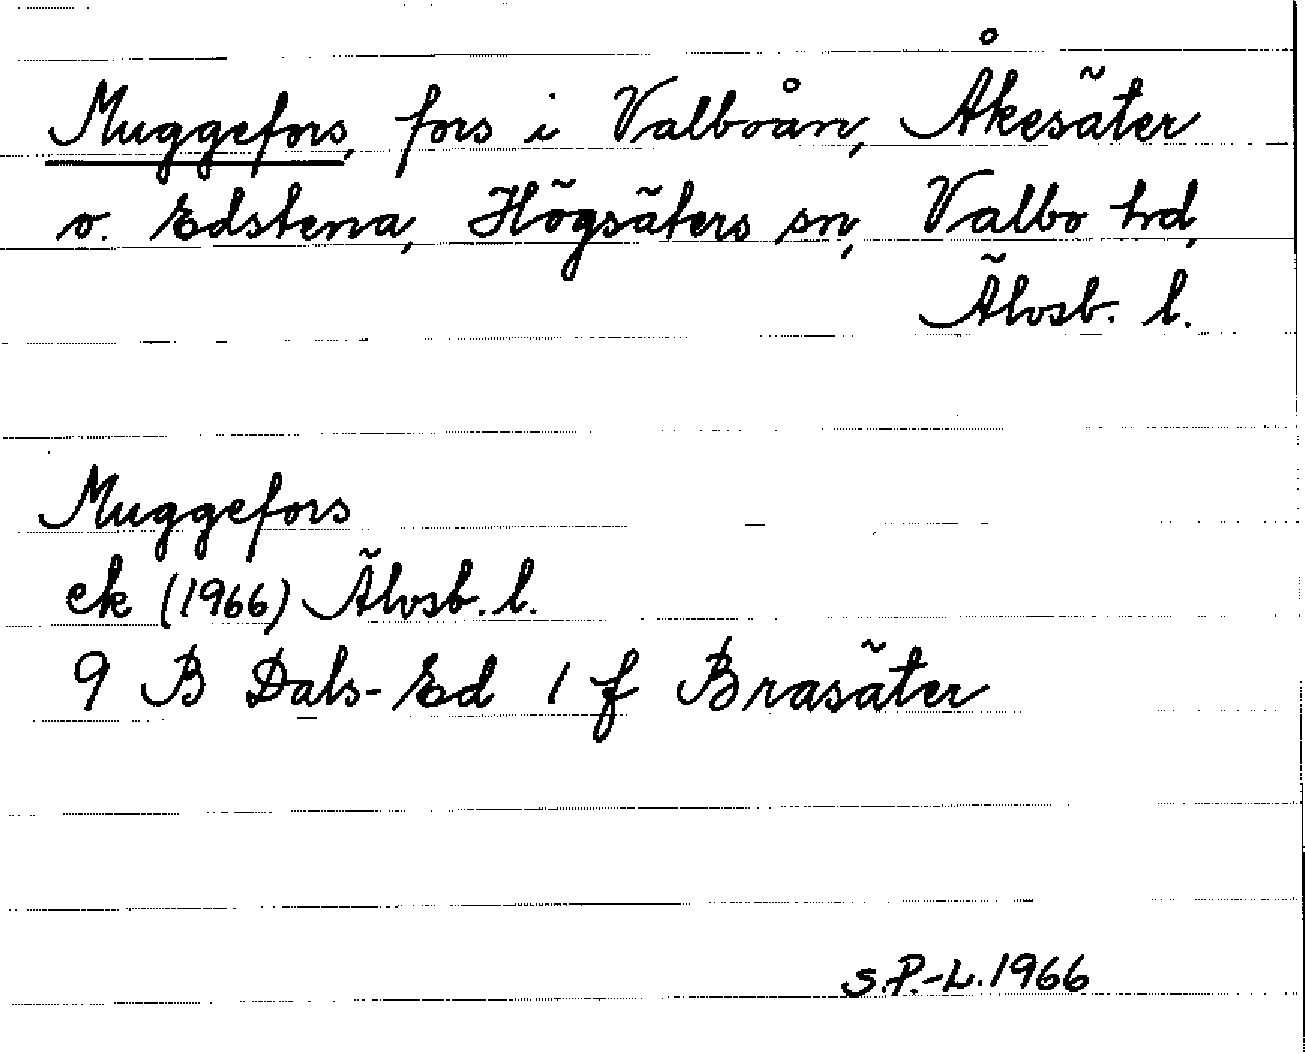 Muggefors, fors i Valboån, Åkesäter
o. Edstena, Högsäters sn, Valbo hd,
Älvsb. l.
Muggefors
ek (1966) Älvsb. l.
9 B Dals-Ed 1 f Brasäter
S.P.-L. 1966